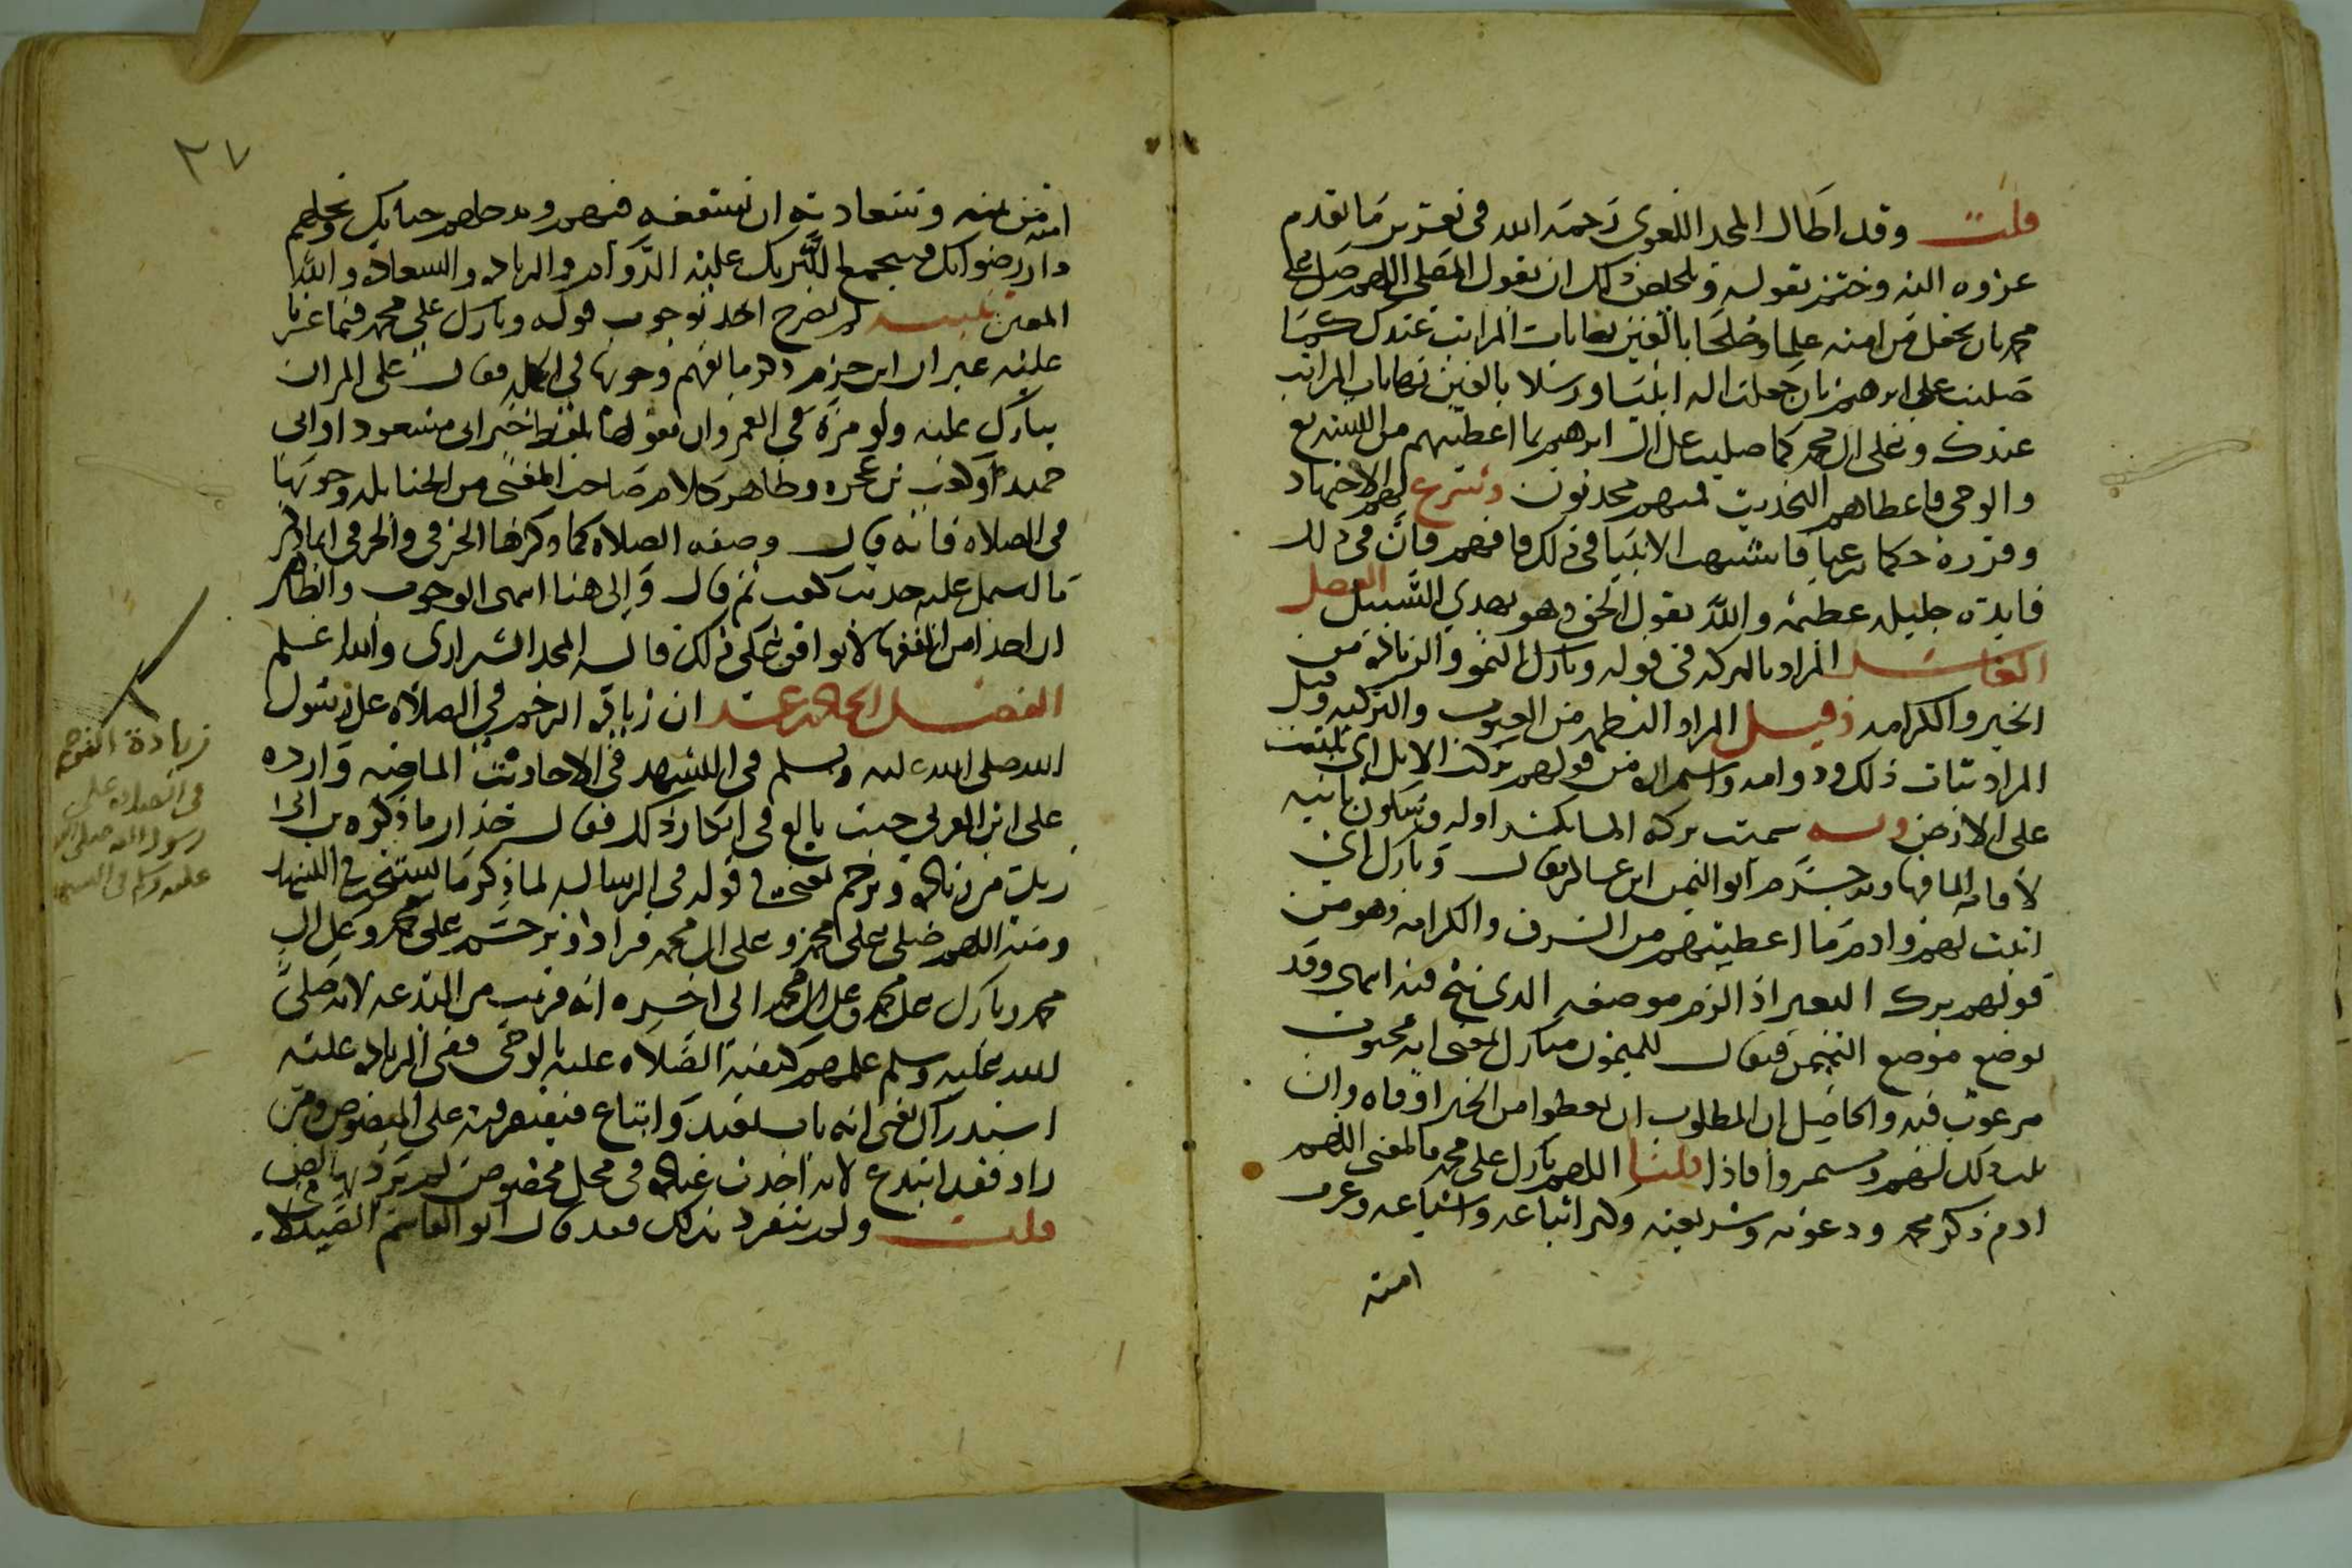 قلت وقد اطال المجد اللغوي رحمه الله في تقرير ما تقدم
عزوه اليه وختمه بقوله وتلخص ذلك ان يقول المصلي اللهم صل على
محمد بان تجعل من امته علما وصلحا بالغين نهايات المراتب عندك كما
صليت على ابرهيم بان جعلت اله انبيا ورسلا بالغين نهايات المراتب
عندك وعلى ال محمد كما صليت على ال ابرهيم بما اعطيتهم من التشريع
والوحي فاعطاهم التحديث فمنهم محدثون وشرع لهم الاجتهاد
وقرره حكما شرعيا فاشبهت الانبيا في ذلك فافهم فان في ذلك
فايدة جليلة عظيمة والله يقول الحق وهو يهدي السبيل الفصل
العاشر المراد بالبركة في قوله وبارك النمو والزيادة من
الخير والكرامة وقيل المراد التطهير من العيوب والتزكية وقيل
المراد ثبات ذلك ودوامه واستمراره من قولهم بركت الابل اي ثبتت
على الارض وبه سميت بركة الما بكسر اوله وسكون ثانيه
لاقامة الما فيها وبه جزم ابو اليمن ابن عساكر فقال وبارك اي
اثبت لهم وادم ما اعطيتهم من الشرف والكرامة وهو من
قولهم برك البعير اذا لزم موضعه الذي نيخ فيه انتهى وقد
توضع موضع التيمن فيقال للميمون مبارك بمعنى انه محبوب
مرغوب فيه والحاصل ان المطلوب ان يعطوا من الخير اوفاه وان
يثبت ذلك لهم ويستمروا فاذا قلنا اللهم بارك على محمد فالمعنى اللهم
ادم ذكر محمد ودعوته وشريعته وكثر اتباعه واشياعه وعرف
امته
٣٧
امته من يمنه وسعادته ان تشفعه فيهم وتدخلهم جناتك وتحلهم
دار رضوانك فيجمع التبريك عليه الدوام والزيادة والسعادة والله
المعين تنبيه لم يصرح احد بوجوب قوله وبارك على محمد فيما عثرنا
عليه غير ان ابن حزم ذكر ما يفهم وجوبها في الجملة فقال على المر ان
يبارك عليه ولو مرة في العمر وان يقولها بلفظ خبر ابي مسعود او ابي
حميد او كعب بن عجره وظاهر كلام صاحب المغني من الحنابلة وجوبها
في الصلاة فانه قال وصفة الصلاة كما ذكرها الخرقي والخرقي انما ذكر
ما اشتمل عليه حديث كعب ثم قال والى هنا انتهى الوجوب والظاهر
ان احدا من الفقها لا يوافق على ذلك قاله المجد الشيرازي والله اعلم
الفصل الحادي عشر ان زيادة الترحم في الصلاة على رسول
الله صلى الله عليه وسلم في التشهد في الاحاديث الماضية واردة
على ابن العربي حيث بالغ في انكار ذلك فقال حذار مما ذكره بن ابي
زيد من زيادة وترحم يعني في قوله في الرسالة لما ذكر ما يستحب في التشهد
ومنه اللهم صلي على محمد وعلى ال محمد فزاد وترحم على محمد وعلى ال
محمد وبارك على محمد وعلى ال محمد الى اخره انه قريب من البدعة لانه صلى
لله عليه وسلم علمهم كيفية الصلاة عليه بالوحي ففي الزيادة عليه
استدراك يعني انه باب تعبد واتباع فيقتصر فيه على المنصوص ومن
زاد فقد ابتدع لانه احدث عبادة في محل مخصوص لم يرد بها نص
قلت ولم ينفرد بذلك فقد قال ابو القاسم الصيدلاني
زيادة الترحم
في الصلاة على
رسول الله صلى الله
عليه وسلم في التشهد